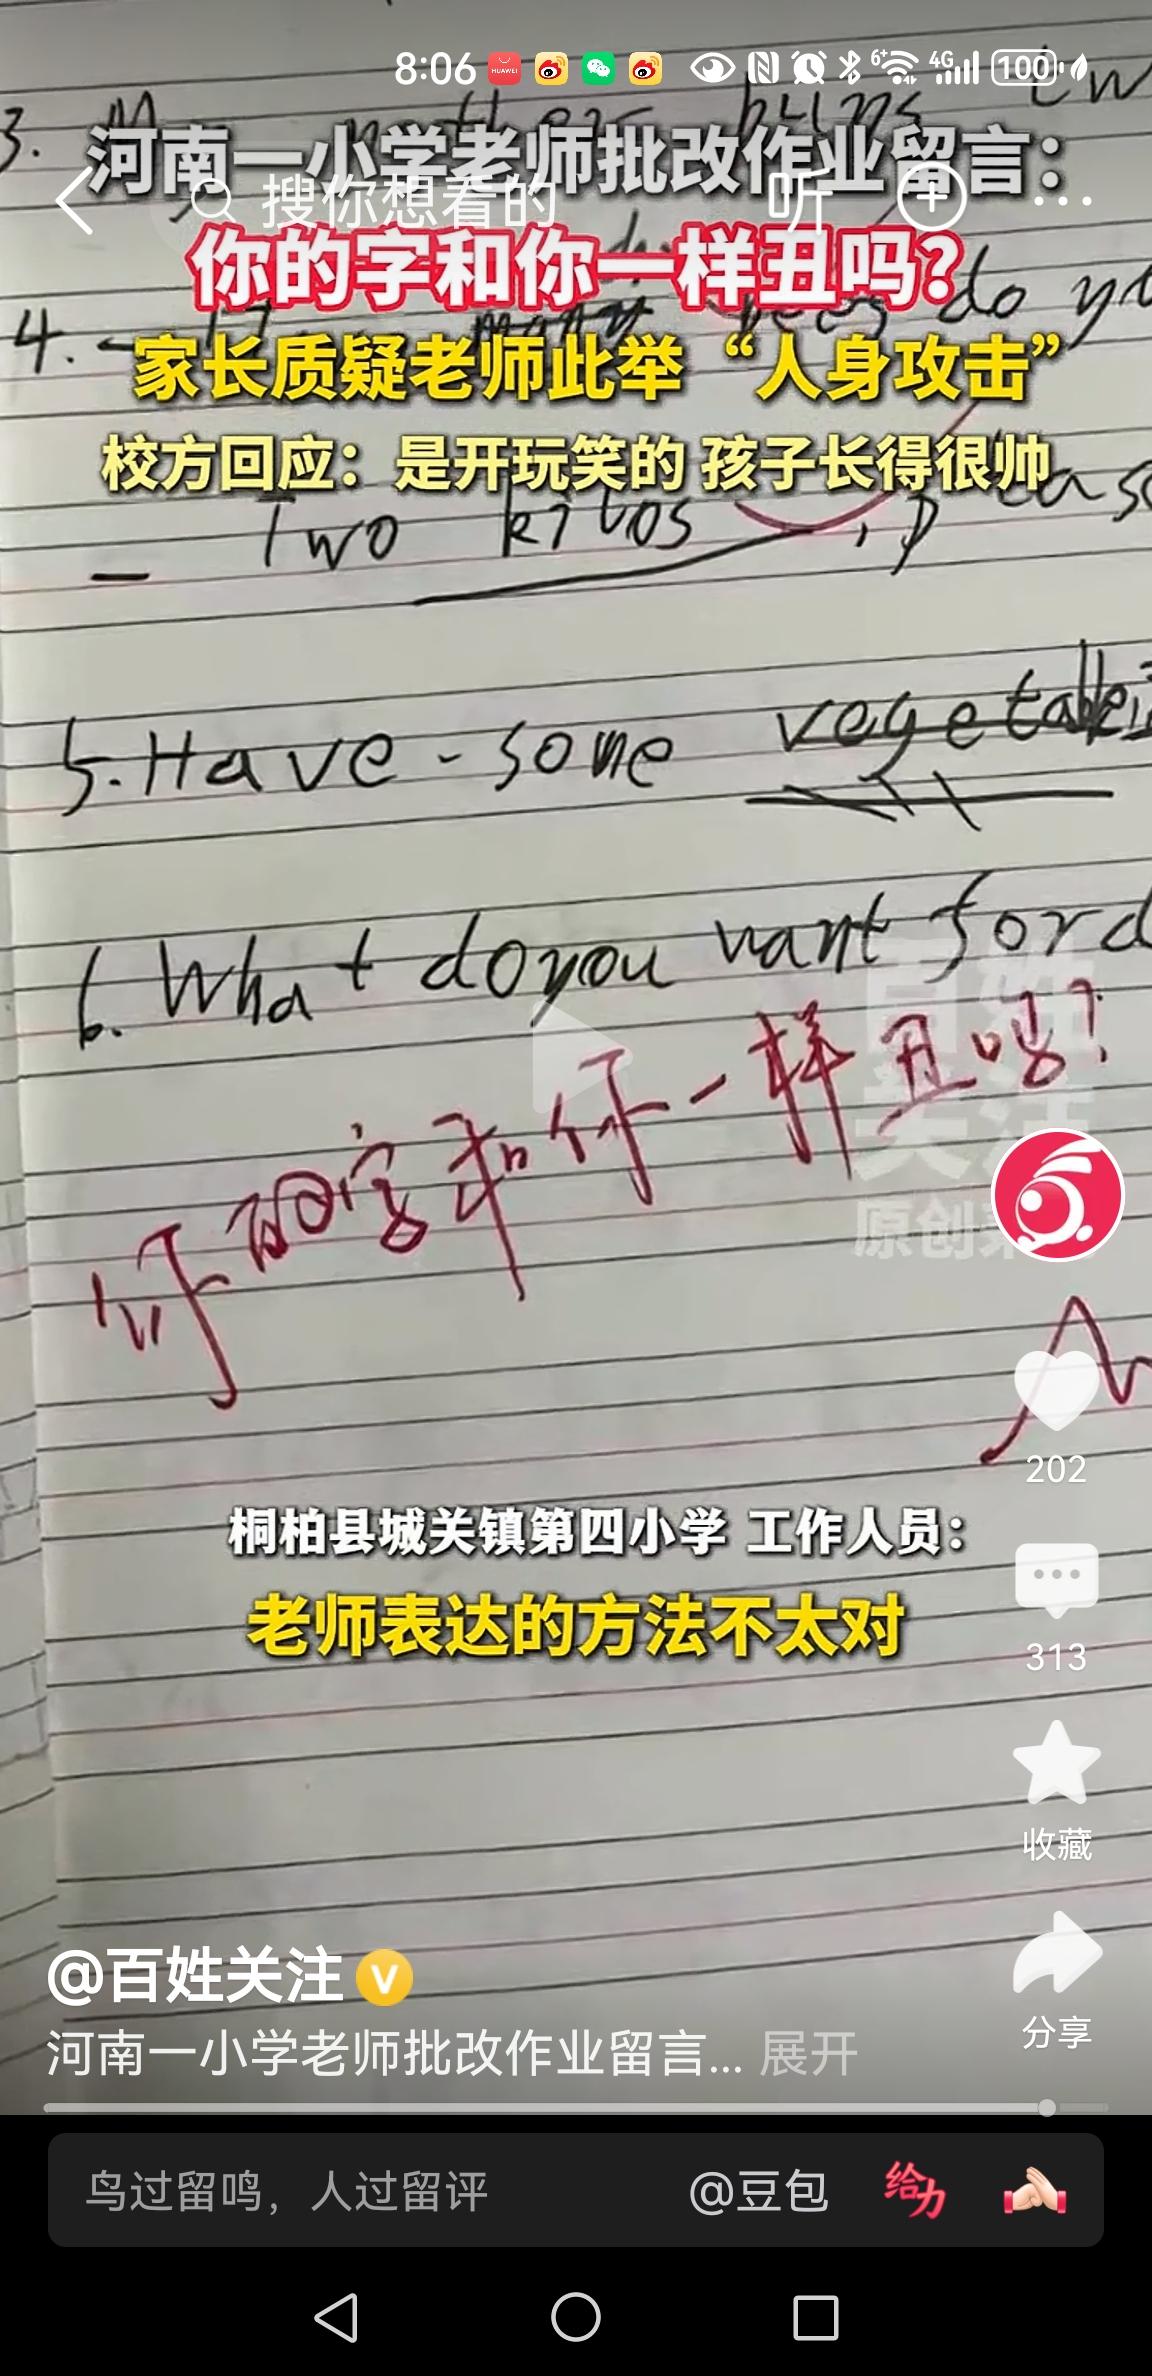 8:06
HUAWEI
6+
4G
100
3. M
河南一小学老师批改作业留言：
搜你想看的
听
你的字和你一样丑吗？
4.
many
do yo
家长质疑老师此举“人身攻击”
校方回应：是开玩笑的 孩子长得很帅
- Two kilos
5. Have - some vegetable
6. What do you want for d
你的字和你一样丑吗？
百姓关注
原创
202
桐柏县城关镇第四小学 工作人员：
老师表达的方法不太对
313
收藏
@百姓关注
分享
河南一小学老师批改作业留言... 展开
鸟过留鸣，人过留评
@豆包
给力